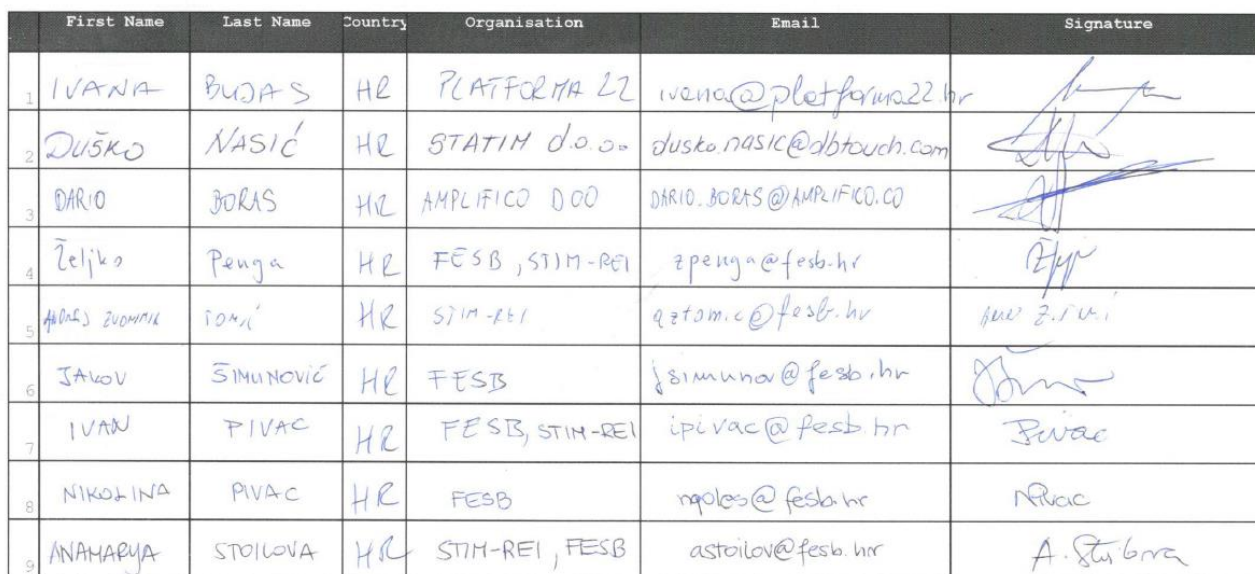 First Name Last Name Country Organisation Email Signature
1 IVANA BUDAS HR PLATFORMA 22 ivana@platforma22.hr
2 DUŠKO NASIĆ HR STATIM d.o.o. dusko.nasic@dbtouch.com
3 DARIO BORAS HR AMPLIFICO DOO DARIO.BORAS@AMPLIFICO.CO
4 Željko Penga HR FESB, STIM-REI zpenga@fesb.hr
5 TOMIĆ HR STIM-REI aztomic@fesb.hr
6 JAKOV ŠIMUNOVIĆ HR FESB jsimunov@fesb.hr
7 IVAN PIVAC HR FESB, STIM-REI ipivac@fesb.hr Pivac
8 NIKOLINA PIVAC HR FESB npoles@fesb.hr NPivac
9 ANAMARIJA STOILOVA HR STIM-REI, FESB astoilov@fesb.hr A. Stoilova